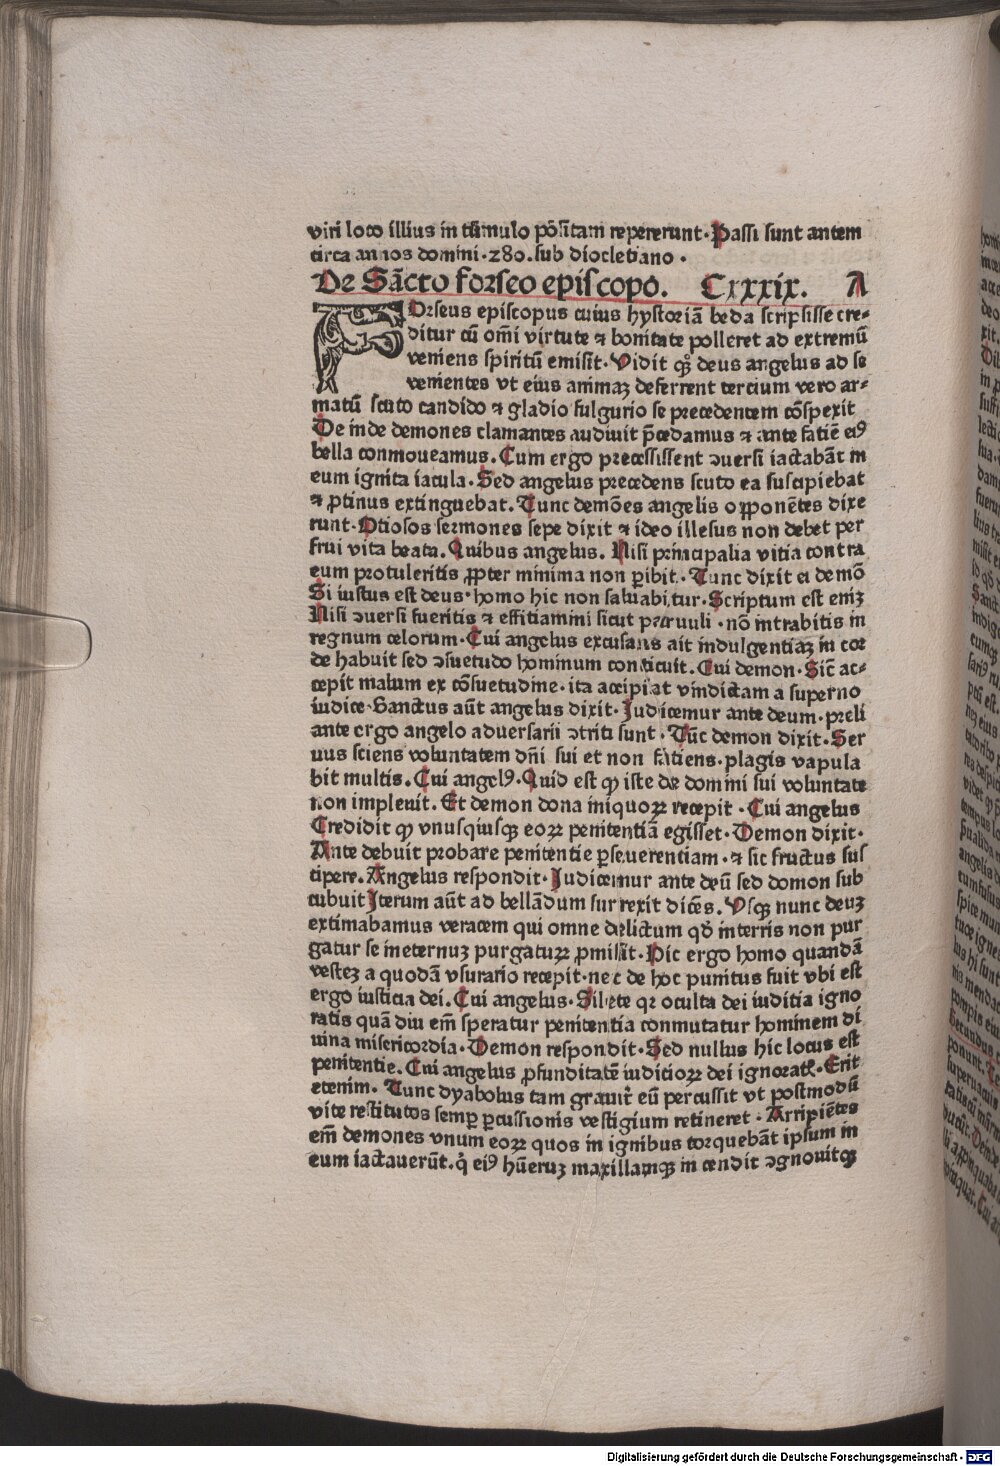 viri loco illius in tumulo põſitam repererunt·Paſſi ſunt autem
circa annos domini·280.ſub diocletiano·
De Sācto forſeo epiſcopo. Cxxxix. A
FOrſeus epiſcopus cuius hyſtoriā beda ſcripſiſſe cre-
ditur cū om̄i virtute ⁊ bonitate polleret ad extremū
veniens ſpiritū emiſit·Vidit qz deus angelus ad ſe
venientes vt eius animaz deferrent tercium vero ar-
matū ſcuto candido ⁊ gladio fulgurio ſe precedentem cōſpexit
De inde demones clamantes audiuit p̄cedamus ⁊ ante faciē eiꝰ
bella conmoueamus. Cum ergo preceſſiſſent ↄuerſi iactabāt in
eum ignita iacula·Sed angelus precedens ſcuto ea ſuſcipiebat
⁊ ꝓtinus extinguebat. Tunc demōes angelis opponētes dixe
runt·Otioſos ſermones ſepe dixit ⁊ ideo illeſus non debet per
frui vita beata. Quibus angelus. Niſi principalia vitia contra
eum protuleritis ꝓpter minima non ꝑibit·Tunc dixit ei demō
Si iuſtus eſt deus·homo hic non ſaluabitur·Scriptum eſt enīz
Niſi ↄuerſi fueritis ⁊ effitiamini ſicut paruuli·nō intrabitis in
regnum celorum·Cui angelus excuſans ait indulgentiaz in cor
de habuit ſed ↄſuetudo hominum conticuit. Cui demon·Sic̄ ac-
cepit malum ex cōſuetudine·ita accipiat vindictam a ſuperno
iudice·Sanctus aūt angelus dixit·Iudicemur ante deum·preli
ante ergo angelo aduerſarii ↄtriti ſunt·Tūc demon dixit·Ser
uus ſciens voluntatem dn̄i ſui et non fatiens·plagis vapula
bit multis. Cui angelꝰ·Quid eſt ꝙ iſte de domini ſui voluntate
non impleuit. Et demon dona iniquoꝝ recepit·Cui angelus
Credidit ꝙ vnuſquiſqz eoꝝ penitentiā egiſſet·Demon dixit·
Ante debuit probare penitentie ꝑſeuerentiam·⁊ ſic fructus ſuſ
cipere. Angelus reſpondit·Iudicemur ante deū ſed domon ſub
cubuit Iterum aūt ad bellādum ſurrexit dicēs. Vſqz nunc deuz
extimabamus veracem qui omne delictum qđ interris non pur
gatur ſe ineternuz purgaturꝝ ꝓmiſit·Hic ergo homo quandā
veſtez a quodā vſurario recepit·nec de hoc punitus fuit vbi eſt
ergo iuſticia dei. Cui angelus·Silete qꝛ oculta dei iuditia igno
ratis quā diu em̄ ſperatur penitentia conmutatur hominem di
uina miſericordia·Demon reſpondit·Sed nullus hic locus eſt
penitentie. Cui angelus ꝓfunditatē iuditioꝝ dei ignoratꝭ·Erit
etenim·Tunc dyabolus tam grauit̓ eū percuſſit vt poſtmodū
vite reſtitutos ſemꝑ ꝑcuſſionis veſtigium retineret·Arripiētes
em̄ demones vnum eoꝝ quos in ignibus torquebāt ipſum in
eum iactauerūt. q̇ eiꝰ hūeruz maxillamqz in cendit ↄgnouitqz
Digitalisierung gefördert durch die Deutsche Forschungsgemeinschaft - DFG